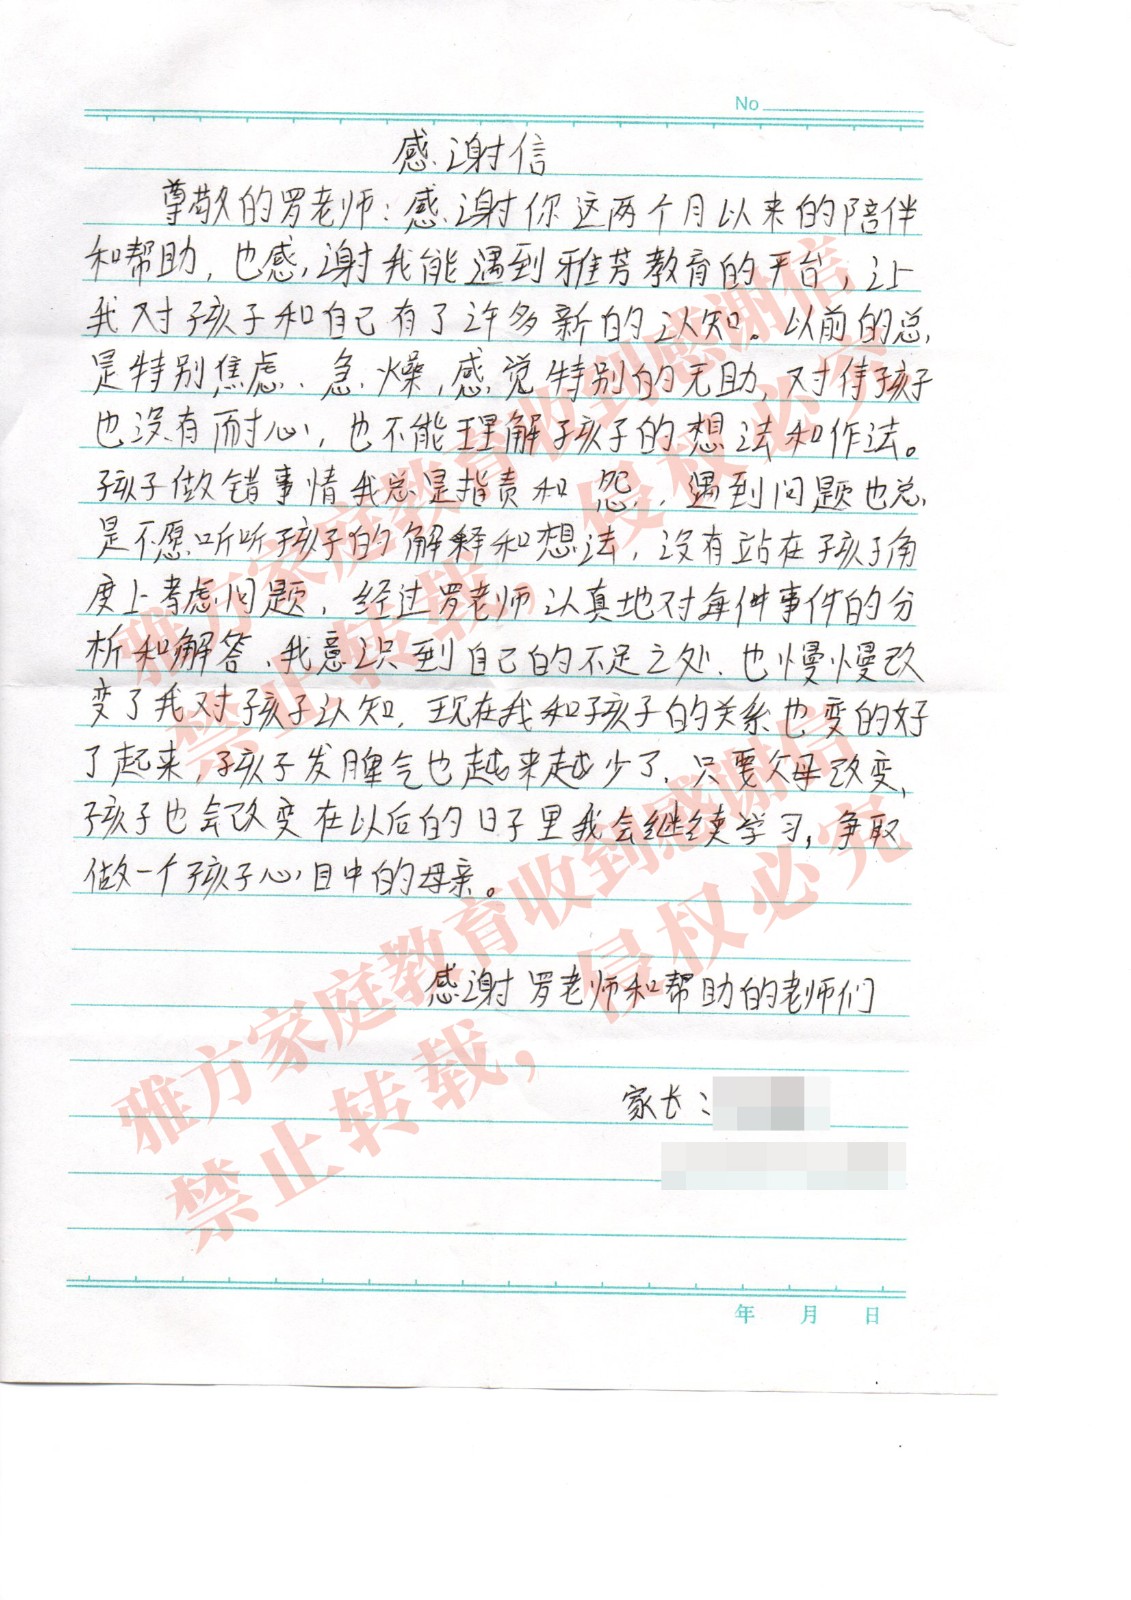 No
感谢信
尊敬的罗老师：感谢你这两个月以来的陪伴
和帮助，也感谢我能遇到雅芳教育的平台，让
我对孩子和自己有了许多新的认知。以前的总
是特别焦虑、急燥，感觉特别的无助，对待孩子
也没有耐心，也不能理解孩子的想法和作法。
孩子做错事情我总是指责和怨，遇到问题也总
是不愿听听孩子的解释和想法，没有站在孩子角
度上考虑问题，经过罗老师认真地对每件事件的分
析和解答、我意识到自己的不足之处、也慢慢改
变了我对孩子认知，现在我和孩子的关系也变的好
了起来，孩子发脾气也越来越少了，只要父母改变，
孩子也会改变在以后的日子里我会继续学习，争取
做一个孩子心目中的母亲。
感谢罗老师和帮助的老师们
家长：
年 月 日
雅方家庭教育收到感谢信
禁止转载，侵权必究
雅方家庭教育收到感谢信
禁止转载，侵权必究